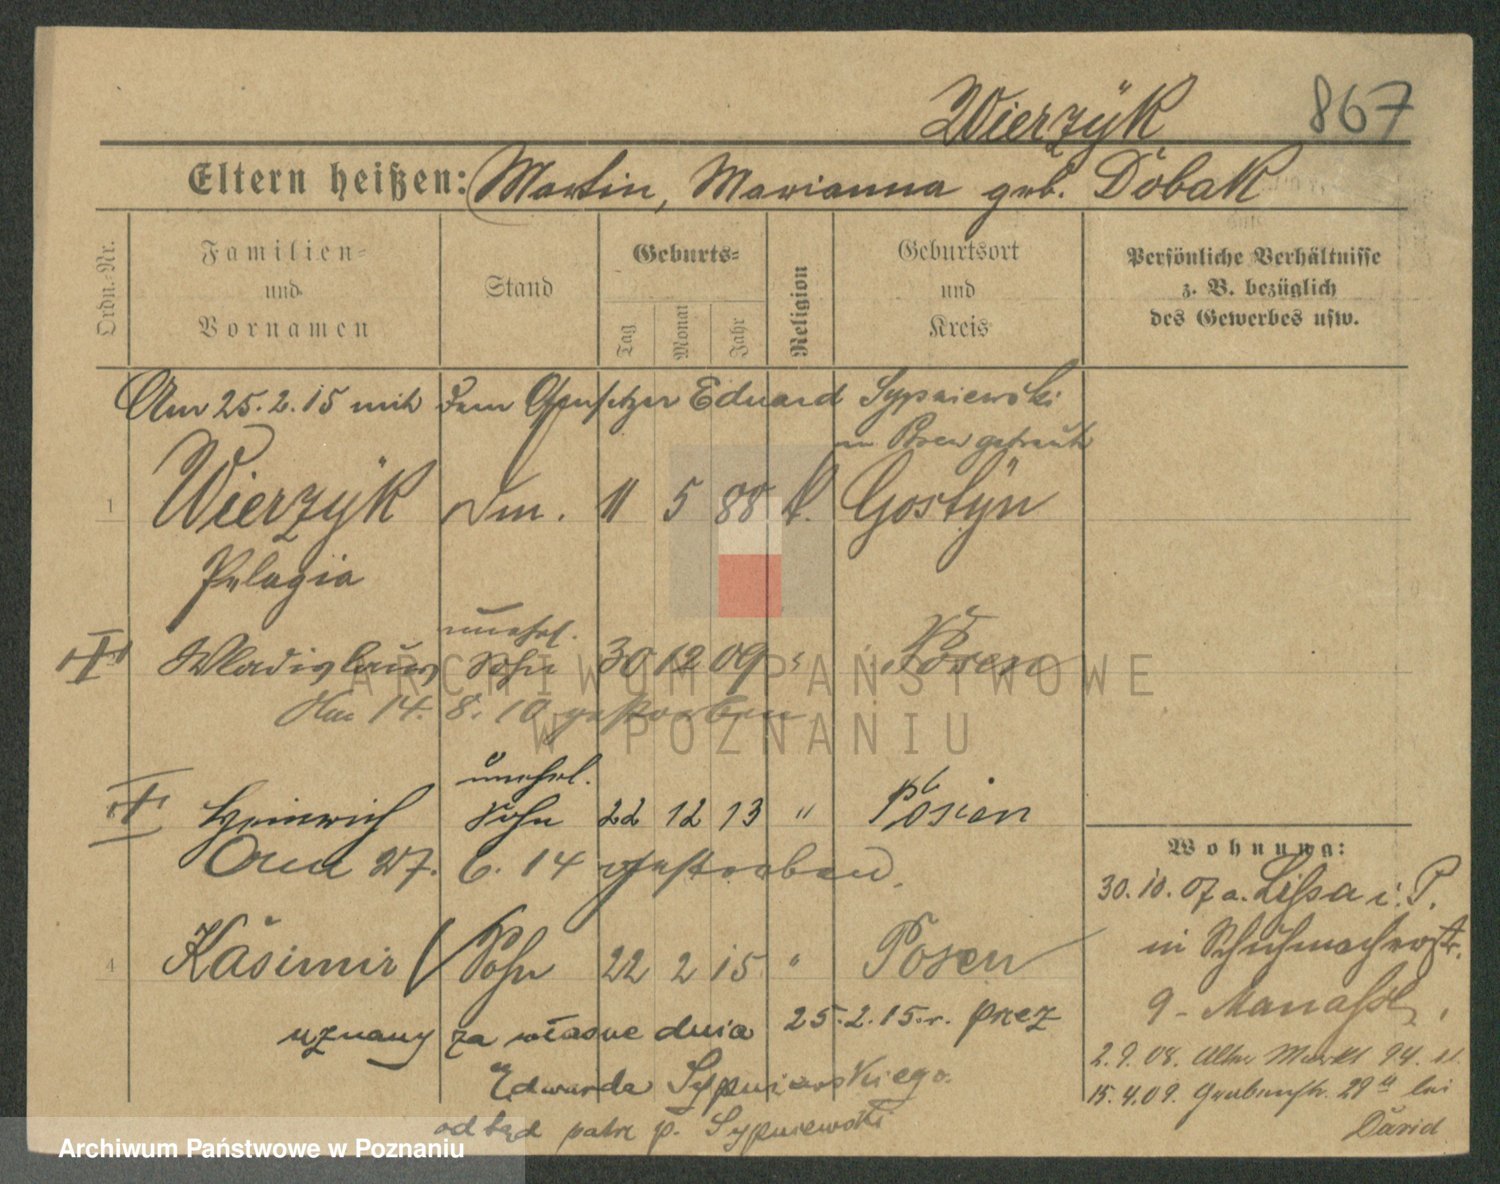 Wierzÿk 867
Eltern heißen: Martin, Marianna geb. Dobak
Ordn.-Nr.
Familien- und Vornamen
Stand
Geburts-
Tag
Monat
Jahr
Religion
Geburtsort und Kreis
Persönliche Verhältnisse
z. B. bezüglich
des Gewerbes usw.
Am 25.2.15 mit dem Eduard Sypniewski
in Posen getraut
1 Wierzÿk 11 5 88 k. Gostÿn
Pelagia
unehel.
Wladislaus Sohn 30 12 09 " Posen
Am 14. 8. 10 gestorben
unehel.
Heinrich Sohn 22 12 13 " Posen
Am 27. 6. 14 gestorben.
4 Kasimir Sohn 22 2 15 " Posen
uznany za własne dnia 25.2.15.r. przez
Edwarda Sypniewskiego.
odtąd patrz p. Sypniewski
Wohnung:
30.10.07 a. Lissa i. P.
in Schuhmacherstr.
9 - Manasse,
2.9.08. Alter Markt 94.
15.4.09. Grabenstr. 29 bei
David
ARCHIWUM PAŃSTWOWE
W POZNANIU
Archiwum Państwowe w Poznaniu